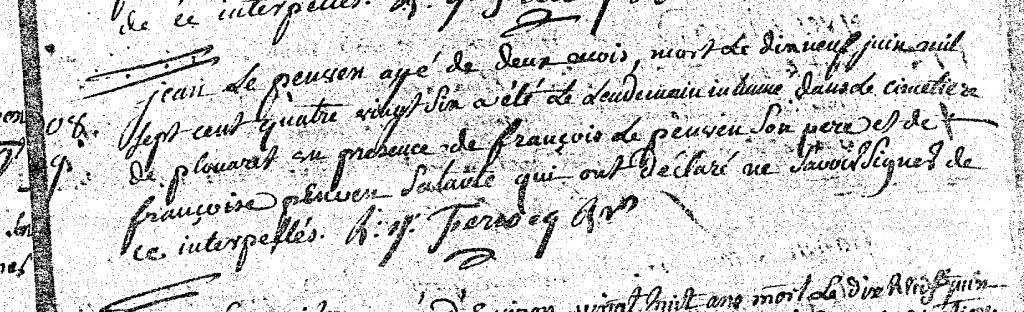 de ce interpellés.
jean Le peuven agé de deux mois, mort Le dixneuf juin mil
08. sept cent quatre vingt six a été Le Lendemain inhumé dans Le cimetiere
de plouaret en presence de françois Le peuven Son pere et de
françoise peuven Sa tante qui ont Déclaré ne Savoir Signer de
ce interpellés.
vingt huit ans mort Le dix neuf juin